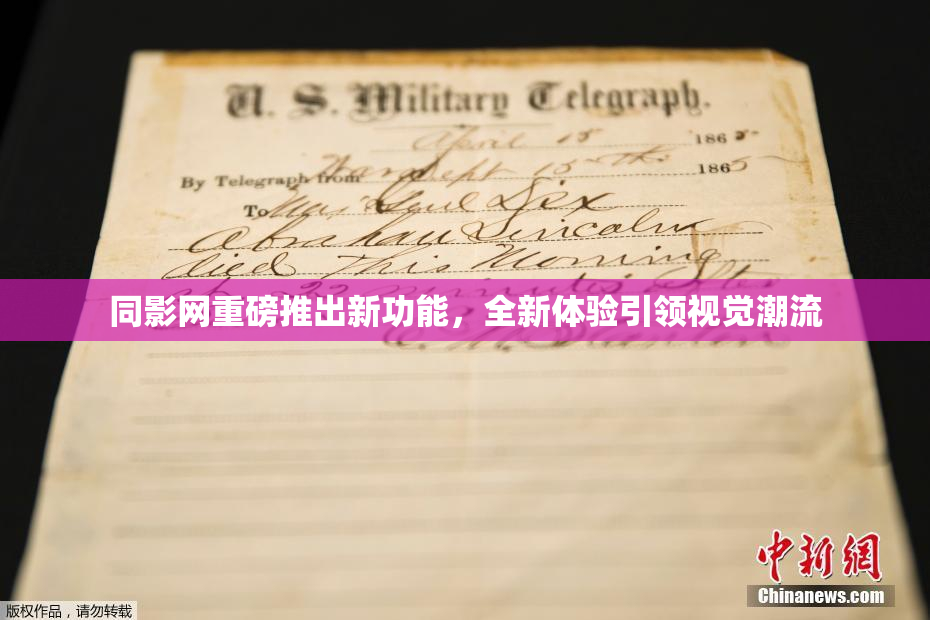 U. S. Military Telegraph.
April 15 1865
By Telegraph from War Dept 15th 1865
To Maj Genl Dix
Abraham Lincoln
died This Morning
at 22 minutes after
同影网重磅推出新功能，全新体验引领视觉潮流
E. M. Stanton
中新网
Chinanews.com
版权作品，请勿转载